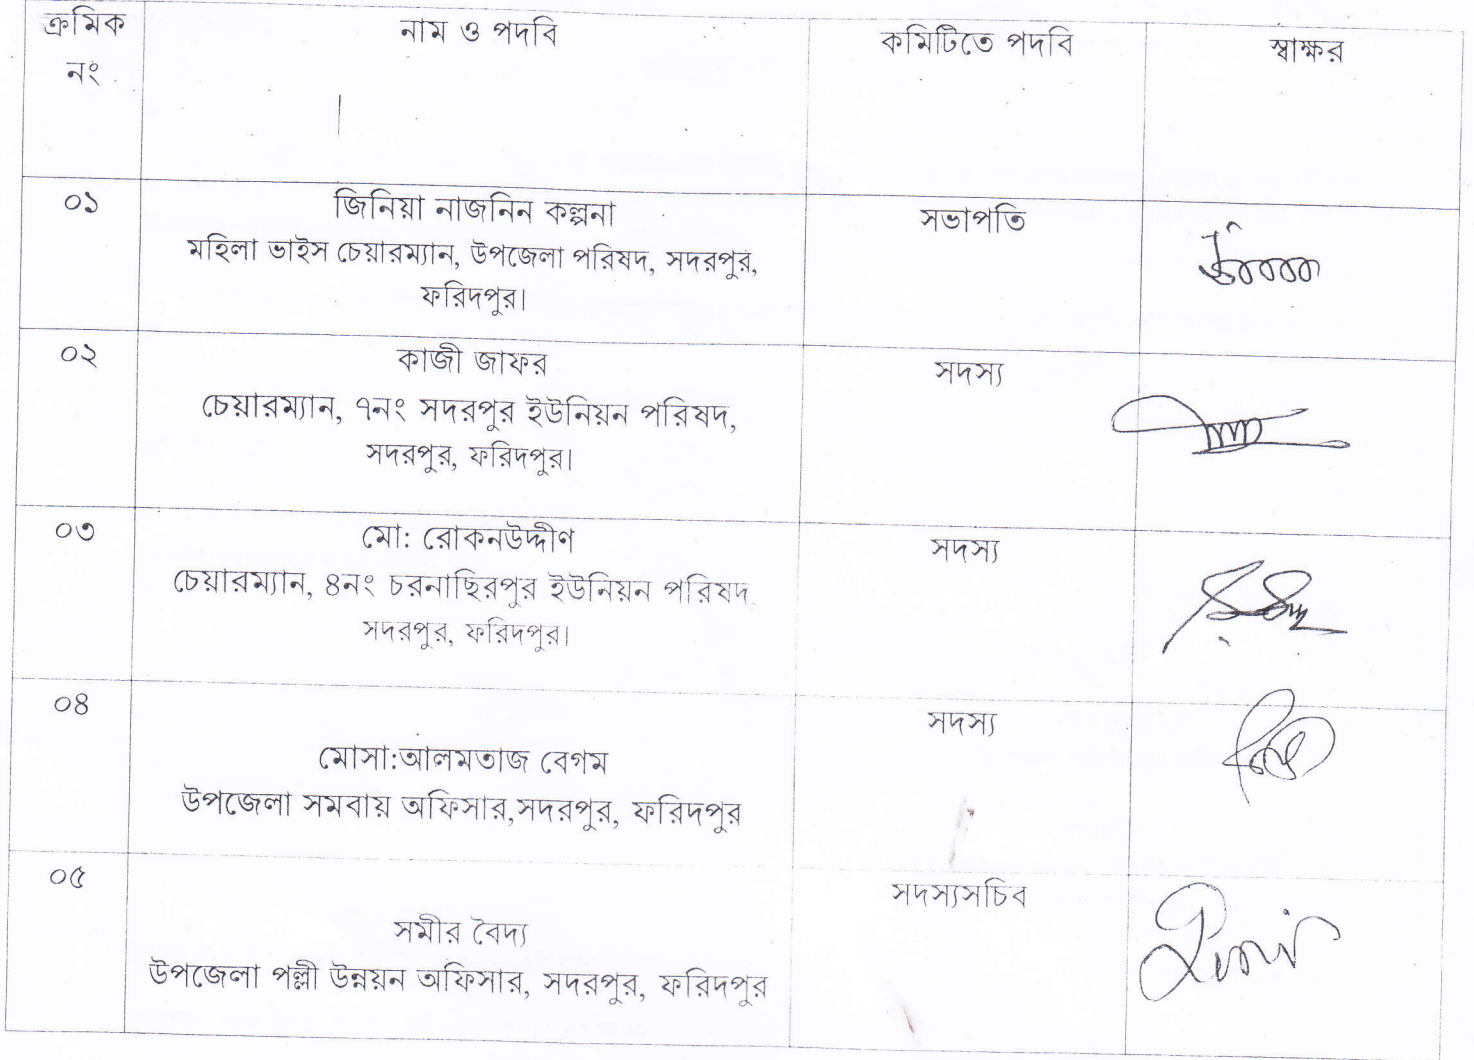 ক্রমিক নং নাম ও পদবি কমিটিতে পদবি স্বাক্ষর
০১ জিনিয়া নাজনিন কল্পনা সভাপতি
মহিলা ভাইস চেয়ারম্যান, উপজেলা পরিষদ, সদরপুর,
ফরিদপুর।
০২ কাজী জাফর সদস্য
চেয়ারম্যান, ৭নং সদরপুর ইউনিয়ন পরিষদ,
সদরপুর, ফরিদপুর।
০৩ মো: রোকনউদ্দীণ সদস্য
চেয়ারম্যান, ৪নং চরনাছিরপুর ইউনিয়ন পরিষদ
সদরপুর, ফরিদপুর।
০৪ সদস্য
মোসা:আলমতাজ বেগম
উপজেলা সমবায় অফিসার,সদরপুর, ফরিদপুর
০৫ সদস্যসচিব
সমীর বৈদ্য
উপজেলা পল্লী উন্নয়ন অফিসার, সদরপুর, ফরিদপুর